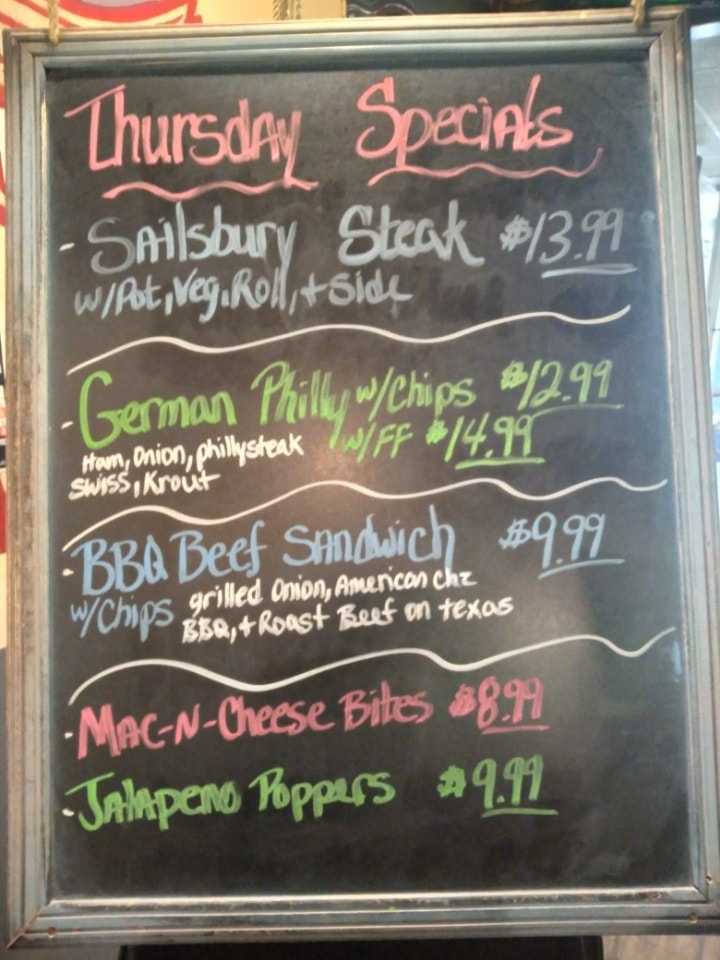 Thursday Specials
- Sailsbury Steak $13.99
w/Pot, Veg, Roll, + Side
- German Philly w/Chips $12.99
w/FF $14.99
Ham, Onion, phillysteak
Swiss, Krout
- BBQ Beef Sandwich $9.99
w/Chips grilled Onion, American chz
BBQ, + Roast Beef on texas
- Mac-N-Cheese Bites $8.99
- Jalapeno Poppers $9.99